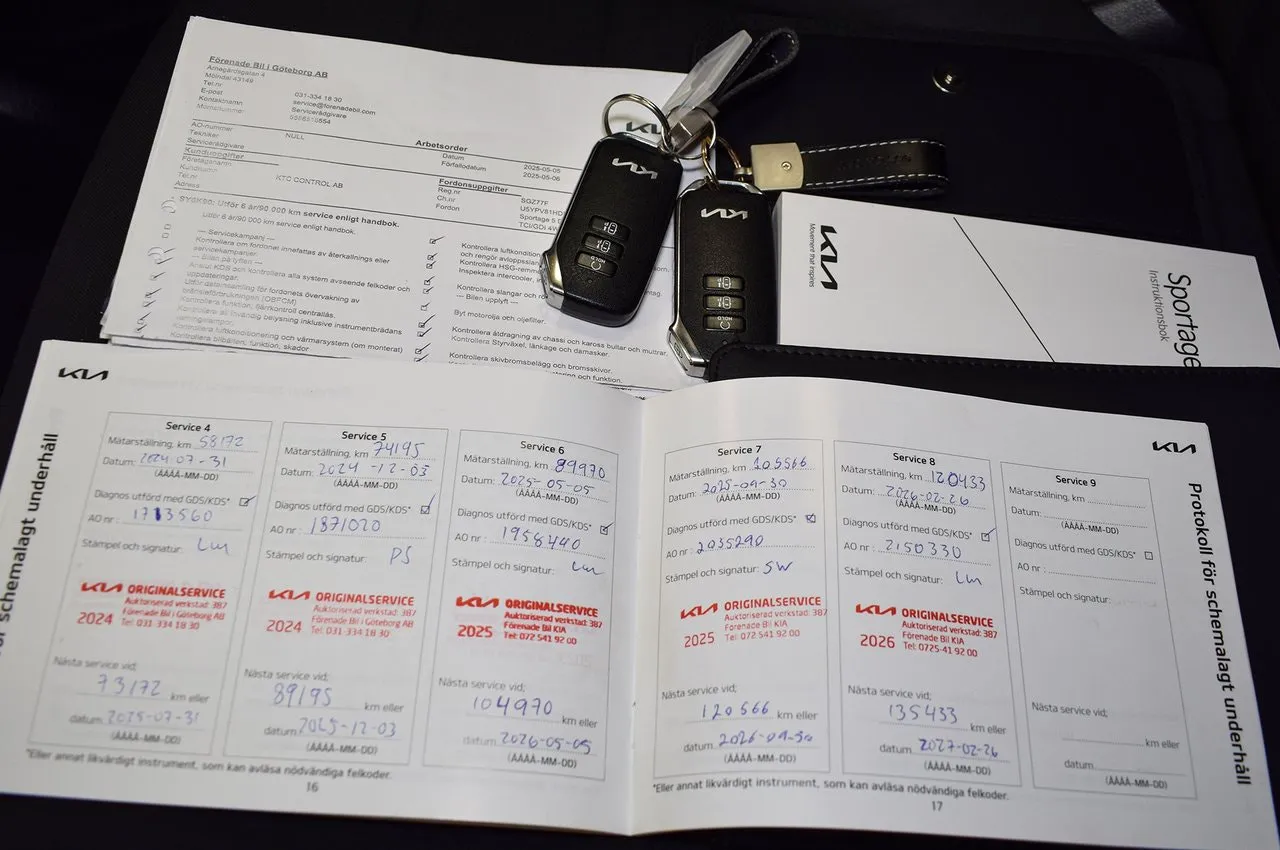 Förenade Bil i Göteborg AB
Arnegårdsgatan 4
Mölndal 43149
Tel.nr 031-334 18 30
E-post service@forenadebil.com
Kontaktnamn Servicerådgivare
Momsnummer
AO-nummer NULL
Tekniker
Servicerådgivare
Arbetsorder
Datum 2025-05-05
Förfallodatum 2025-05-06
Kunduppgifter
Företagsnamn KTC CONTROL AB
Kundnamn
Tel.nr
Adress
Fordonsuppgifter
Reg.nr SGZ77F
Ch.nr U5YPV81HD
Fordon Sportage 5.0
TCI/GDI 4W
SYSK90: Utför 6 år/90 000 km service enligt handbok.
Utför 6 år/90 000 km service enligt handbok.
--- Servicekampanj ---
Kontrollera om fordonet innefattas av återkallnings eller
servicekampanjer.
--- Bilen på lyften ---
Anslut KDS och kontrollera alla system avseende felkoder och
uppdateringar.
Utför datainsamling för fordonets övervakning av
bränsleförbrukningen (OBFCM)
Kontrollera funktion, lås
Kontrollera all invändig belysning inklusive instrumentbrädans
varningslampor.
Kontrollera luftkonditionering och värmarsystem (om monterat)
Kontrollera bilbälten, funktion, skador
Kontrollera luftkondition
och rengör avloppsslan
Kontrollera HSG-remm
Inspektera intercooler, in
Kontrollera slangar och rö
--- Bilen upplyft ---
Byt motorolja och oljefilter.
Kontrollera åtdragning av chassi och kaross bultar och muttrar,
Kontrollera Styrväxel, länkage och damasker.
Kontrollera skivbromsbelägg och bromsskivor.
och funktion.
KIA
KIA
HOLD
KIA
HOLD
KIA
Movement that inspires
Sportage
Instruktionsbok
KIA
schemalagt underhåll
Service 4
Mätarställning, km 58172
Datum: 2024-07-31
(ÅÅÅÅ-MM-DD)
Diagnos utförd med GDS/KDS*
AO nr : 1713560
Stämpel och signatur: Lm
KIA ORIGINALSERVICE
Auktoriserad verkstad: 387
Förenade Bil i Göteborg AB
2024 Tel: 031-334 18 30
Nästa service vid;
73172 km eller
datum 2025-07-31
(ÅÅÅÅ-MM-DD)
Service 5
Mätarställning, km 74195
Datum: 2024-12-03
(ÅÅÅÅ-MM-DD)
Diagnos utförd med GDS/KDS*
AO nr : 1871020
Stämpel och signatur: PS
KIA ORIGINALSERVICE
Auktoriserad verkstad: 387
Förenade Bil i Göteborg AB
2024 Tel: 031-334 18 30
Nästa service vid;
89195 km eller
datum 2025-12-03
(ÅÅÅÅ-MM-DD)
Service 6
Mätarställning, km 89970
Datum: 2025-05-05
(ÅÅÅÅ-MM-DD)
Diagnos utförd med GDS/KDS*
AO nr : 1958440
Stämpel och signatur: Lm
KIA ORIGINALSERVICE
Auktoriserad verkstad: 387
Förenade Bil KIA
2025 Tel: 072 541 92 00
Nästa service vid;
104970 km eller
datum 2026-05-05
(ÅÅÅÅ-MM-DD)
*Eller annat likvärdigt instrument, som kan avläsa nödvändiga felkoder.
16
Service 7
Mätarställning, km 105566
Datum: 2025-09-30
(ÅÅÅÅ-MM-DD)
Diagnos utförd med GDS/KDS*
AO nr : 2035290
Stämpel och signatur: SW
KIA ORIGINALSERVICE
Auktoriserad verkstad: 387
Förenade Bil KIA
2025 Tel: 072 541 92 00
Nästa service vid;
120566 km eller
datum 2026-09-30
(ÅÅÅÅ-MM-DD)
Service 8
Mätarställning, km 120433
Datum: 2026-02-26
(ÅÅÅÅ-MM-DD)
Diagnos utförd med GDS/KDS*
AO nr : 2150330
Stämpel och signatur: Lm
KIA ORIGINALSERVICE
Auktoriserad verkstad: 387
Förenade Bil KIA
2026 Tel: 0725-41 92 00
Nästa service vid;
135433 km eller
datum 2027-02-26
(ÅÅÅÅ-MM-DD)
KIA
Service 9
Mätarställning, km
Datum:
(ÅÅÅÅ-MM-DD)
Diagnos utförd med GDS/KDS*
AO nr :
Stämpel och signatur:
Nästa service vid;
km eller
datum
(ÅÅÅÅ-MM-DD)
Protokoll för schemalagt underhåll
*Eller annat likvärdigt instrument, som kan avläsa nödvändiga felkoder.
17